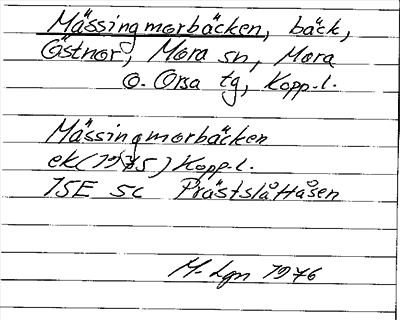 Mässingmorbäcken, bäck,
Östnor, Mora sn, Mora
o. Orsa tg, Kopp.l.
Mässingmorbäcken
ek (1975) Kopp.l.
15E 5c Prästslåttåsen
M. Lgn 1976